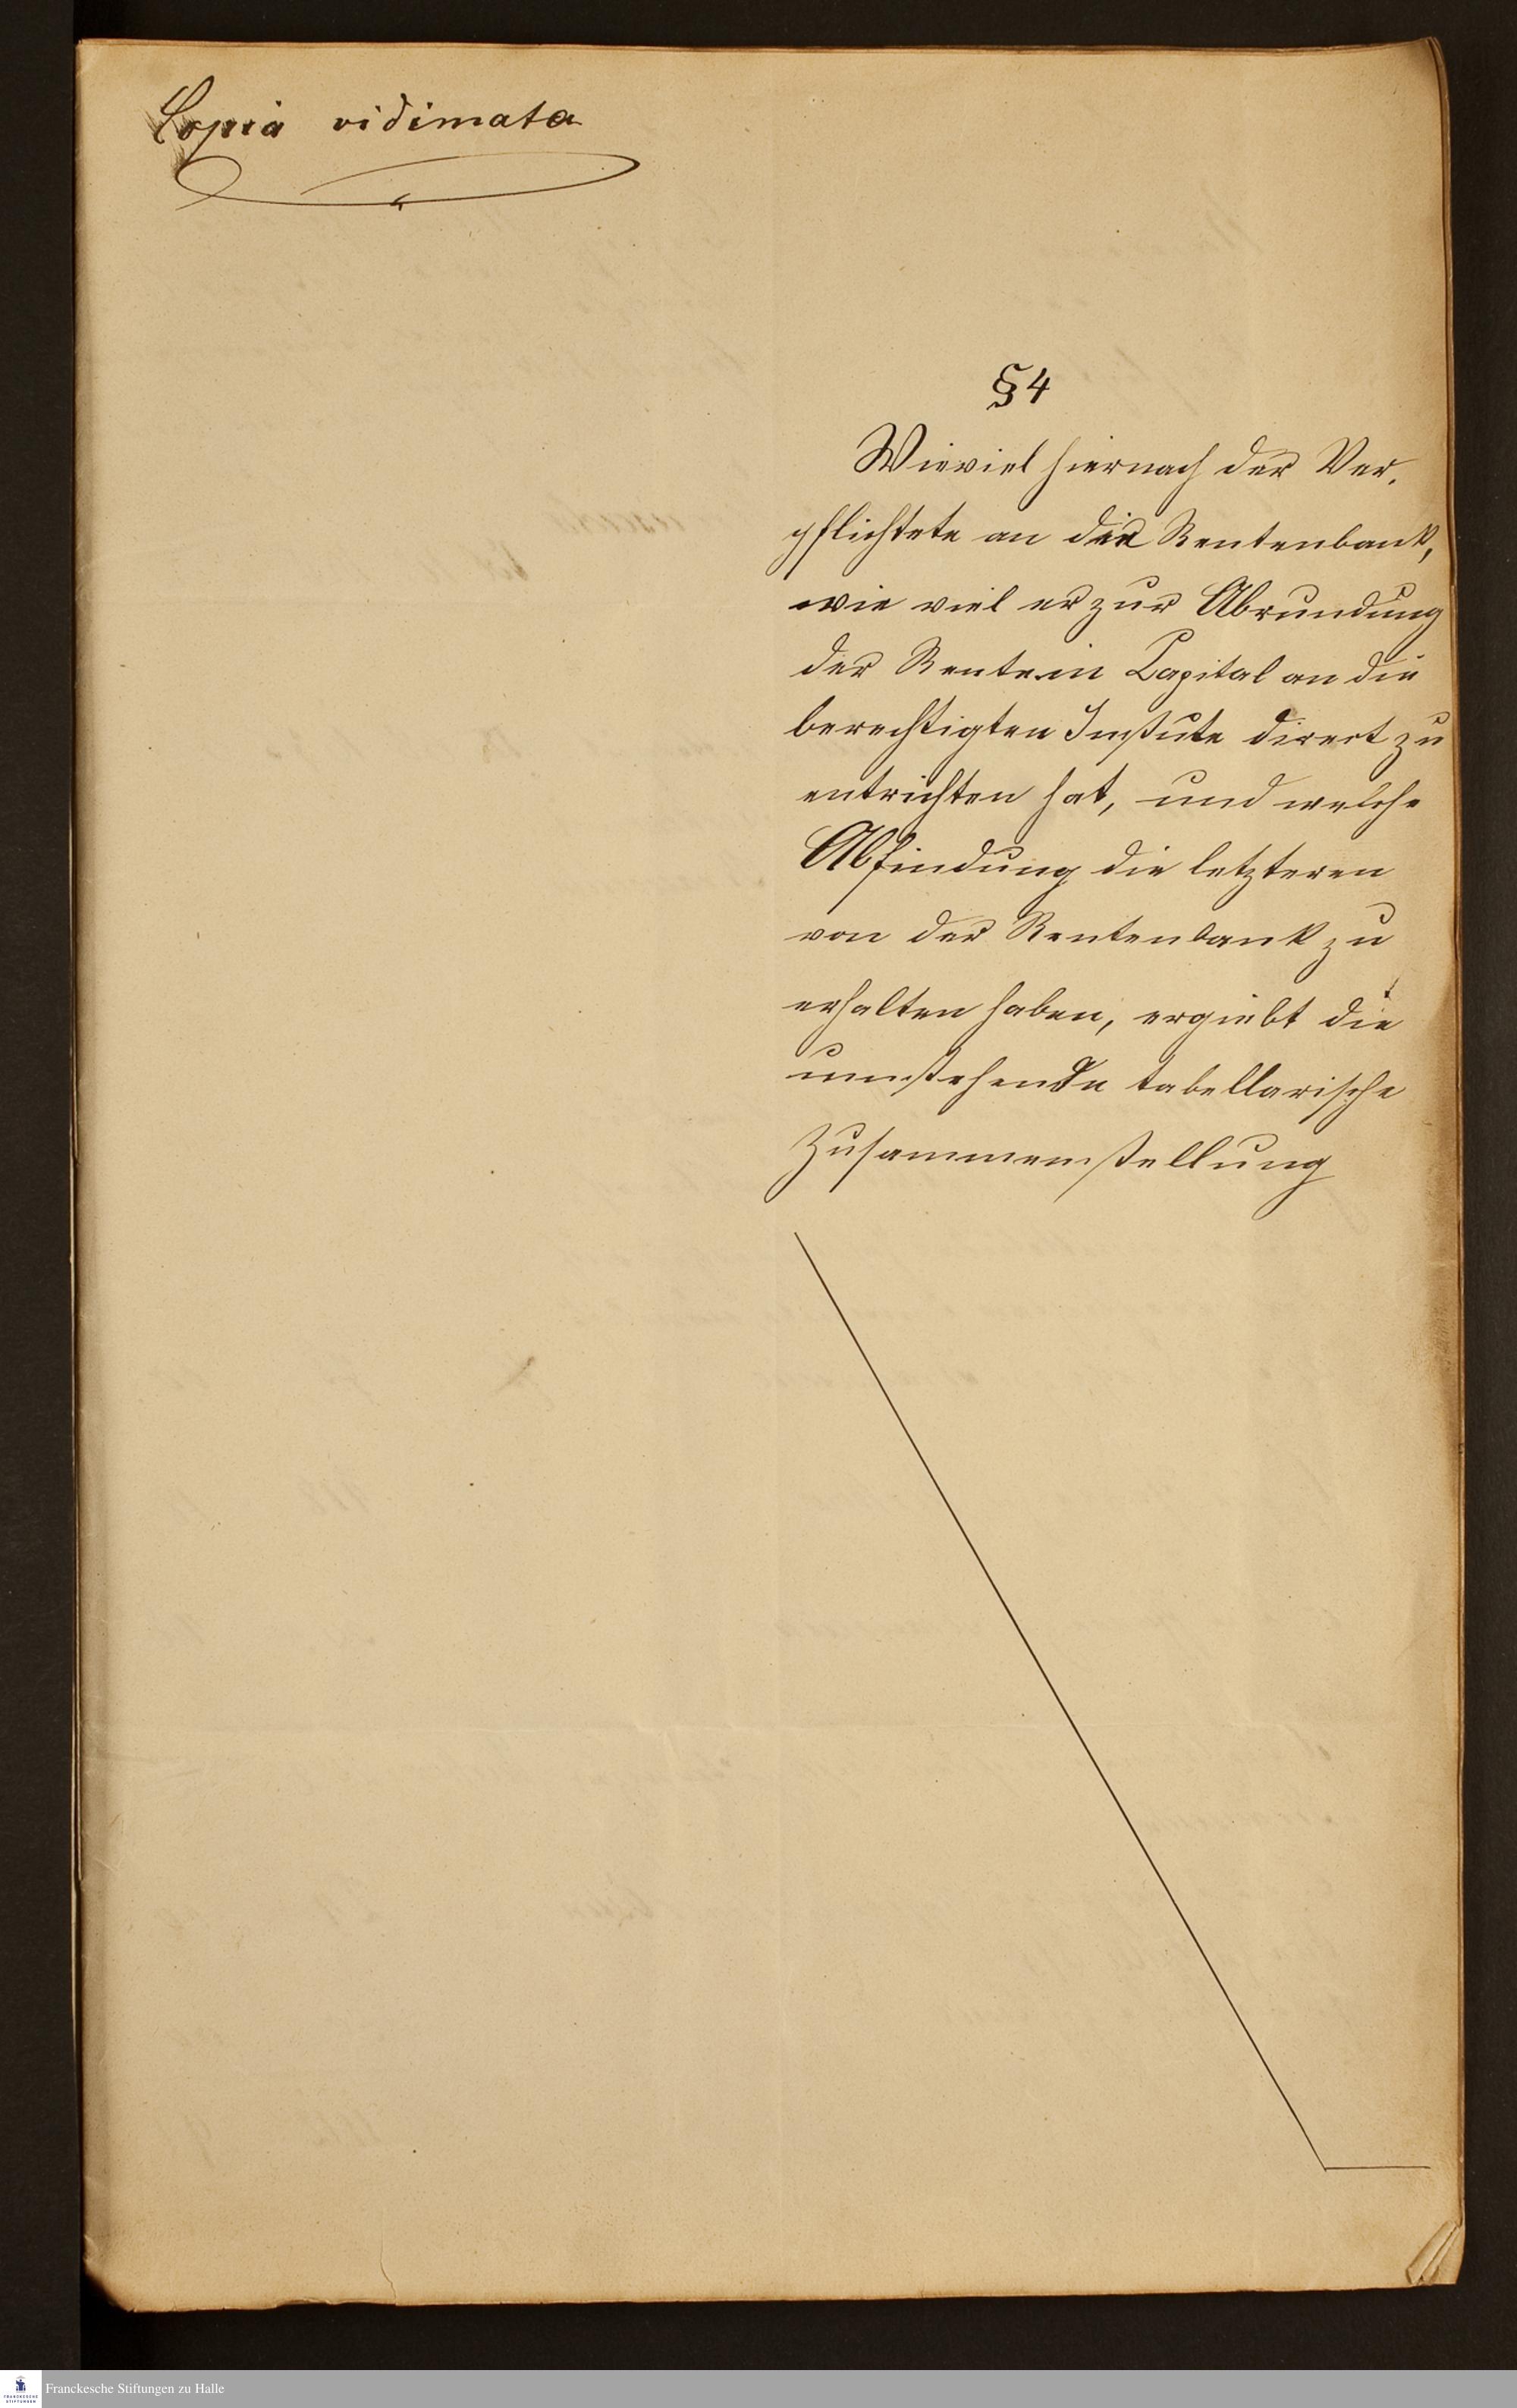 Copia vidimata
§ 4
Wieviel hiernach der Ver-
pflichtete an die Rentenbank,
wie viel er zur Abrundung
der Rente in Capital an die
berechtigten Instute direct zu
entrichten hat, und welche
Abfindung die letzteren
von der Rentenbank zu
erhalten haben, ergiebt die
umstehende tabellarische
Zusammenstellung
Franckesche Stiftungen zu Halle
FRANCKESCHE
STIFTUNGEN